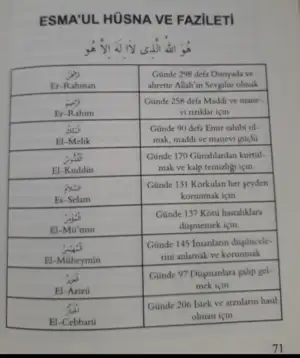 ESMA'UL HÜSNA VE FAZİLETİ
هُوَ اللهُ الَّذِى لَا إِلَهَ إِلَّا هُوَ
الرَّحْمٰنُ
Er-Rahman
Günde 298 defa Dünyada ve
ahrette Allah'ın Sevgilisi olmak
الرَّحِيمُ
Er-Rahim
Günde 258 defa Maddi ve mane-
vi rızıklar için
الْمَلِكُ
El-Melik
Günde 90 defa Emir sahibi ol-
mak, maddi ve manevi güçlü
الْقُدُّوسُ
El-Kuddüs
Günde 170 Günahlardan kurtul-
mak ve kalp temizliği için
السَّلَامُ
Es-Selam
Günde 131 Korkulan her şeyden
korunmak için
الْمُؤْمِنُ
El-Mü'min
Günde 137 Kötü hastalıklara
düşmemek için
الْمُهَيْمِنُ
El-Müheymin
Günde 145 İnsanların düşüncele-
rini anlamak ve korunmak
الْعَزِيزُ
El-Azizü
Günde 97 Düşmanlara galip gel-
mek için
الْجَبَّارُ
El-Cebbarü
Günde 206 İstek ve arzuların hasıl
olması için
71